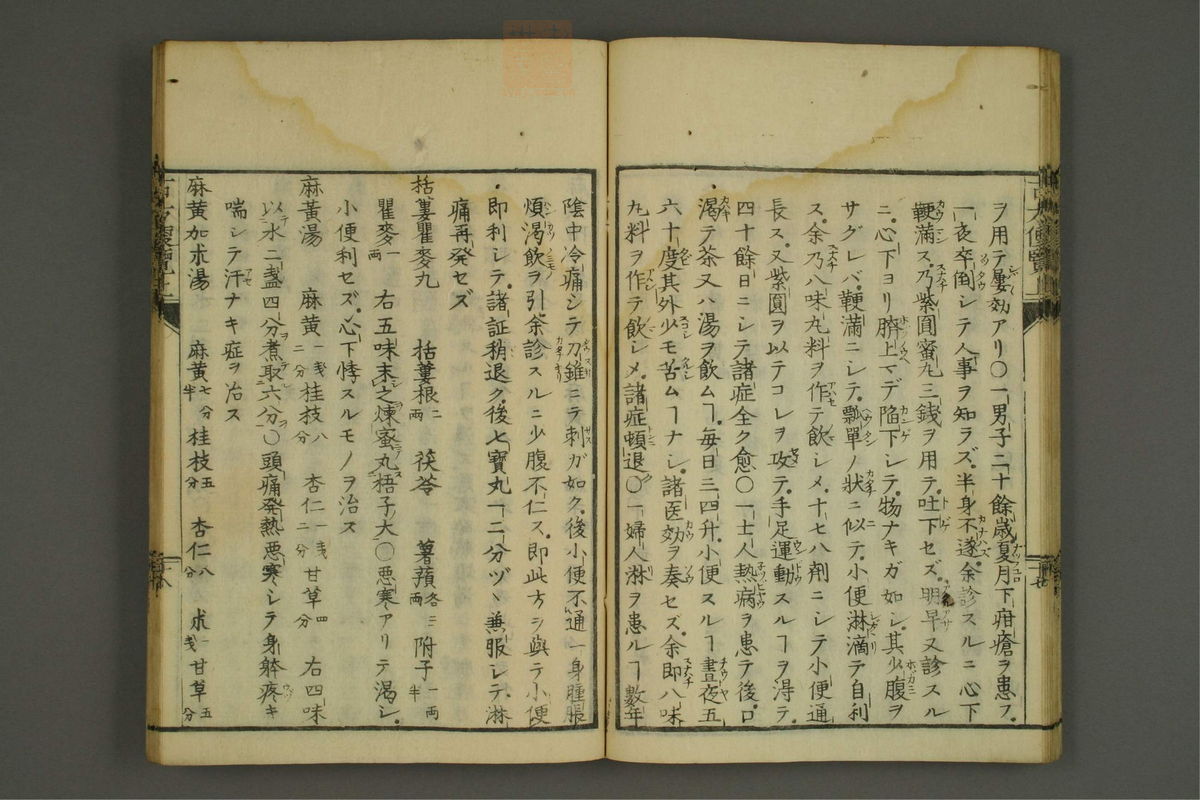 ヲ用テ屢効アリ〇一男子二十餘歳夏月下疳瘡ヲ患フ
一夜卒倒シテ人事ヲ知ラズ半身不遂余診スルニ心下
鞕滿ス乃紫圓蜜丸三錢ヲ用テ吐下セズ明早又診スル
ニ心下ヨリ臍上マデ陷下シテ物ナキガ如シ其少腹ヲ
サグレバ鞕滿ニシテ瓢單ノ狀ニ似テ小便淋滴テ自利
ス余乃八味丸料ヲ作テ飲シメ十七八劑ニシテ小便通
長ス又紫圓ヲ以テコレヲ攻テ手足運動スルヿヲ淂テ
四十餘日ニシテ諸症全ク愈〇一士人熱病ヲ患テ後口
渇テ茶又ハ湯ヲ飲ムヿ毎日三四升小便スルヿ晝夜五
六十度其外少モ苦ムヿナシ諸医効ヲ奏セズ余即八味
丸料ヲ作テ飲シメ諸症頓退〇一婦人淋ヲ患ルヿ數年
陰中冷痛シテ刀錐ニテ刺ガ如ク後小便不通一身腫脹
煩渇飲ヲ引余診スルニ少腹不仁ス即此方ヲ與テ小便
即利シテ諸証稍退ク後七寶丸一二分ヅヽ兼服シテ淋
痛再発セズ
括蔞瞿麥丸 括蔞根二両 茯苓 薯蕷各三両 附子一両半
瞿麥一両 右五味末之煉蜜丸梧子大〇悪寒アリテ渇シ
小便利セズ心下悸スルモノヲ治ス
麻黄湯 麻黄一戔二分 桂枝八分 杏仁一戔二分 甘草四分 右四味
以水二盞四分煮取六分〇頭痛発熱悪寒シテ身躰疼キ
喘シテ汗ナキ症ヲ治ス
麻黄加朮湯 麻黄七分半 桂枝五分 杏仁八分 朮一戔 甘草五分